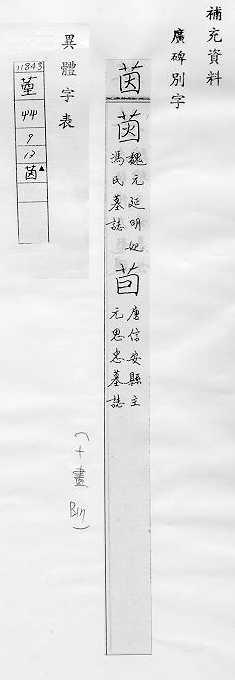 補充資料
廣碑別字
茵
茵 魏元延明妃馮民墓誌
苜 唐信安縣主元思忠墓誌
(十畫 Bin)
異體字表
11843
堇
艸
9
13
茵▲